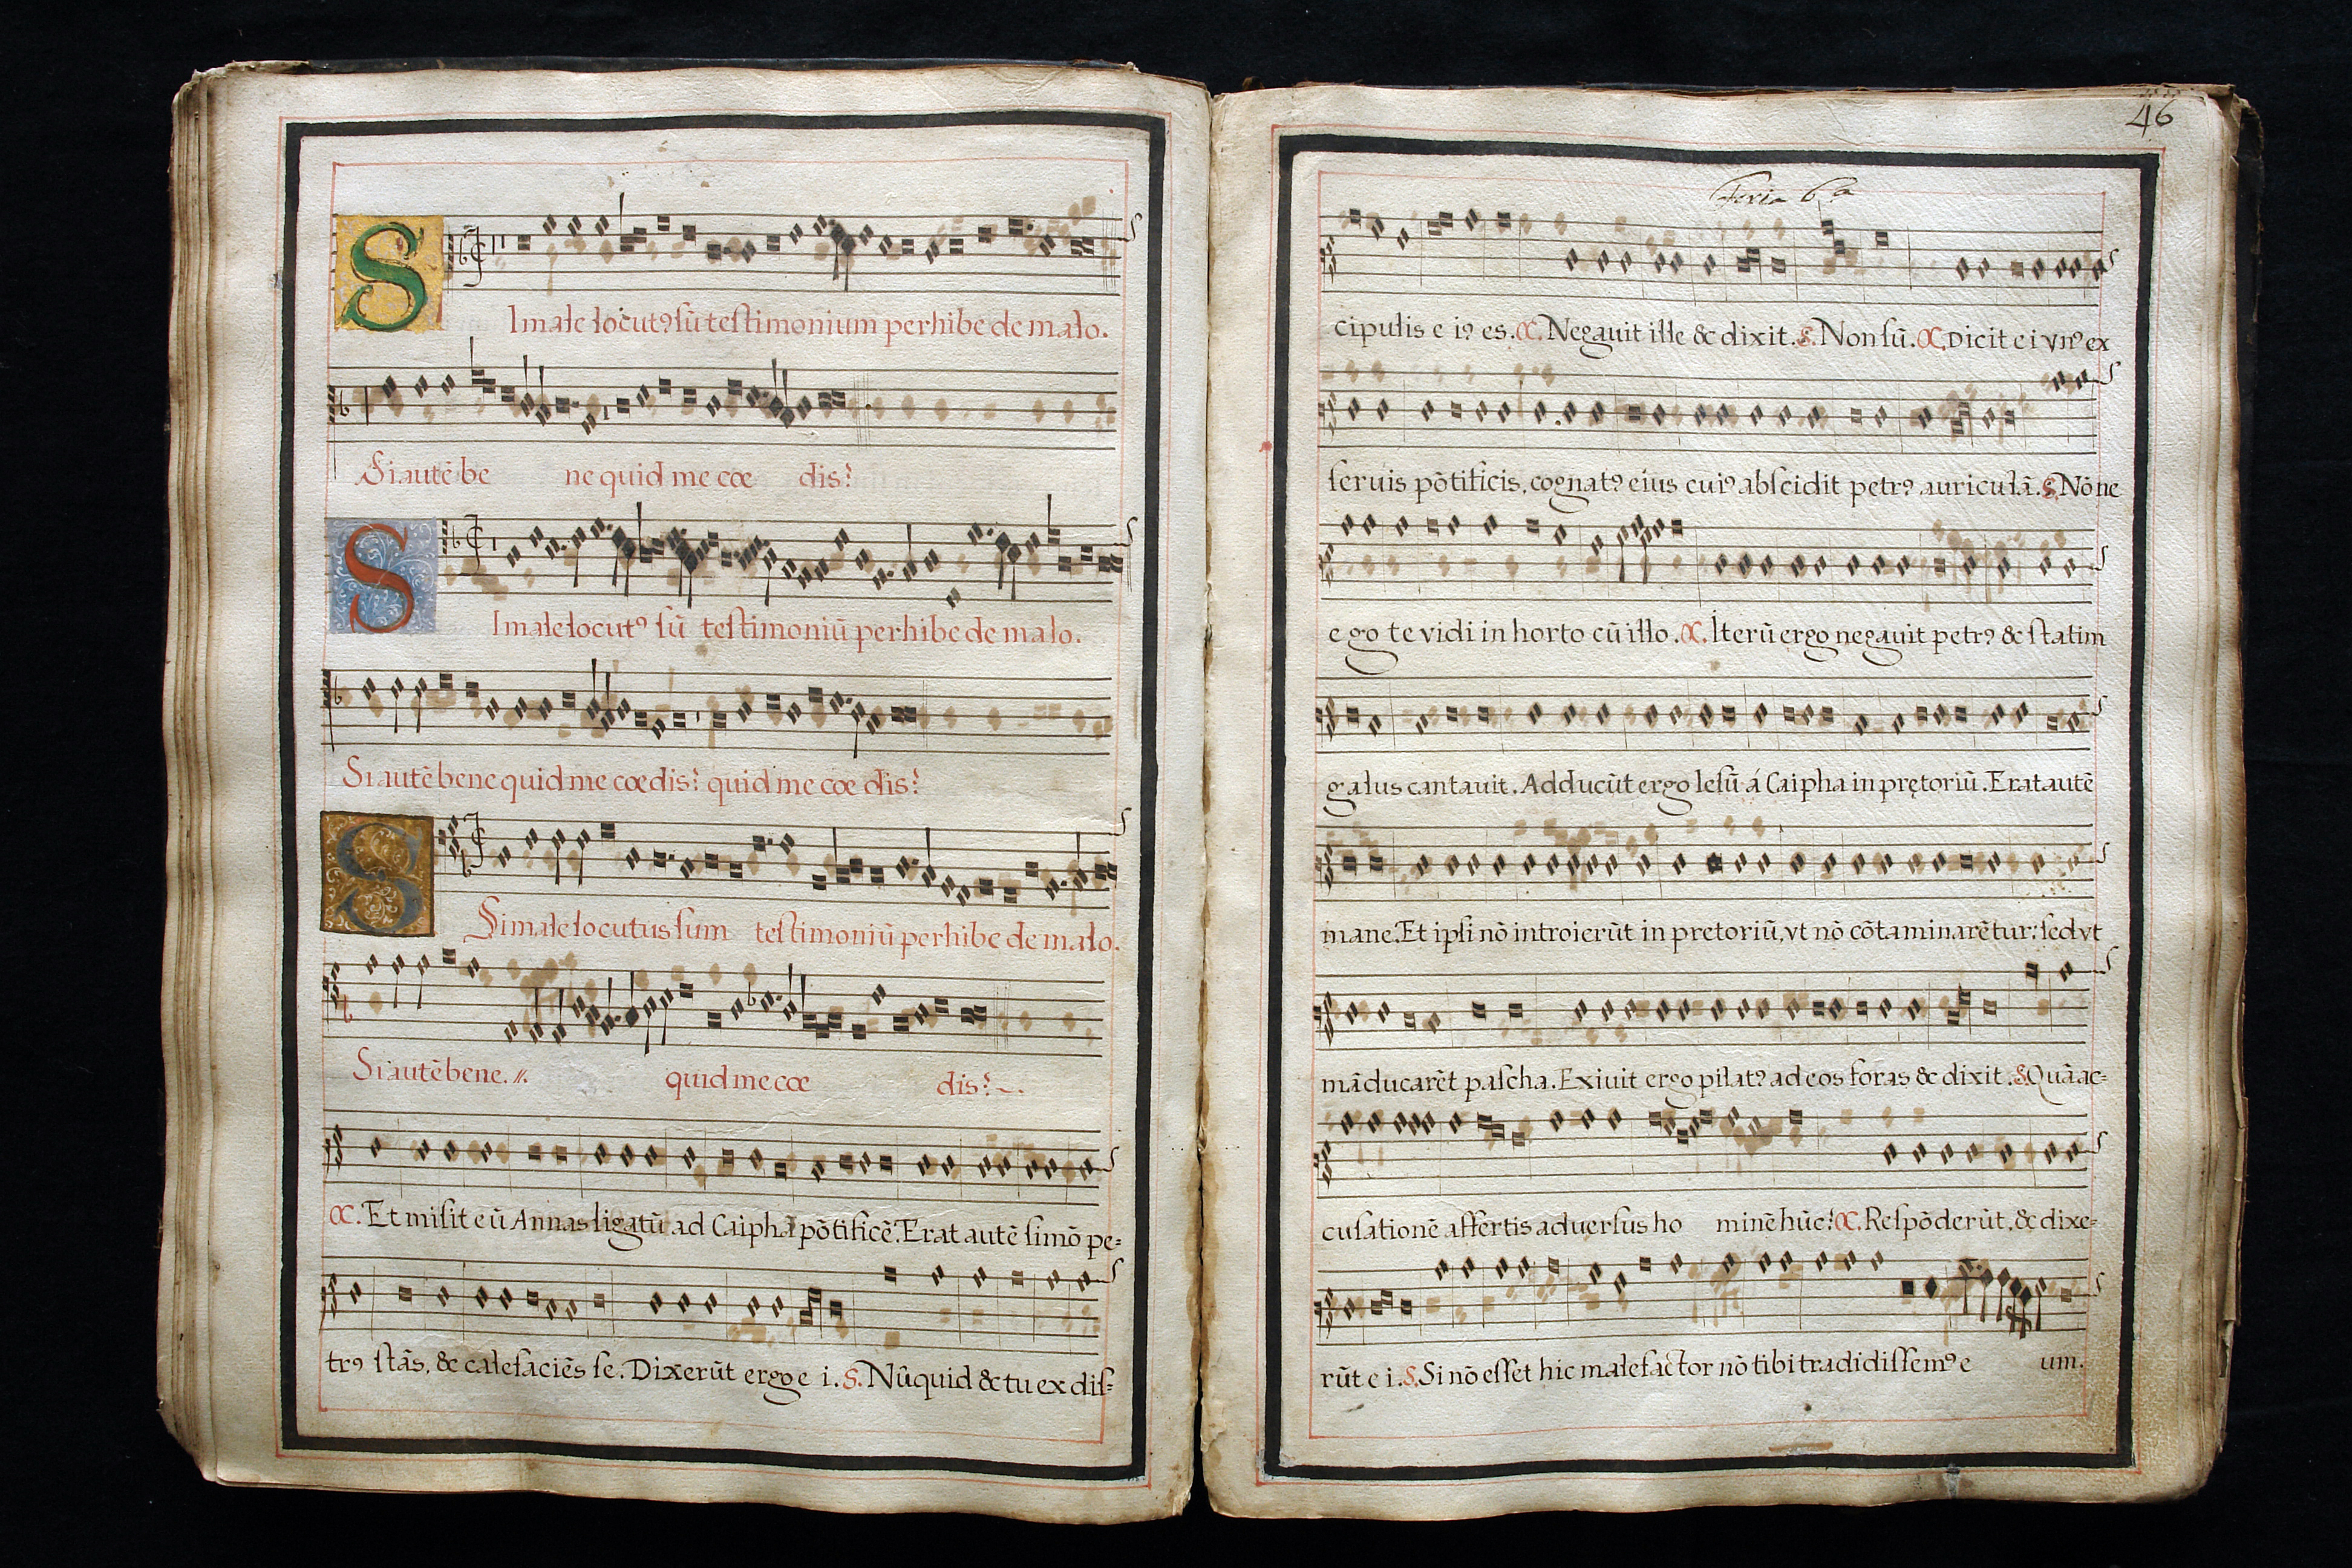 SImale locutꝰ sũ testimonium perhibe de malo.
Si autẽ be ne quid me cœ dis?
SImale locutꝰ sũ testimoniũ perhibe de malo.
Si autẽ bene quid me cœdis? quid me cœ dis?
S
Si male locutus sum testimoniũ perhibe de malo.
Si autẽ bene. //. quid me cœ dis?
C. Et misit eũ Annas ligatũ ad Caiphã põtificẽ. Erat autẽ simõ pe=
trꝰ stãs, & calefaciẽs se. Dixerũt ergo e i. S. Nũquid & tu ex dis=
46
Feria 6ª
cipulis e iꝰ es. C. Negauit ille & dixit. S. Non sũ. C. Dicit ei vnꝰ ex
seruis põtificis, cognatꝰ eius cuiꝰ abscidit petrꝰ auriculã. S. Nõ ne
ego te vidi in horto cũ illo. C. Iterũ ergo negauit petrꝰ & statim
galus cantauit. Adducũt ergo Iesũ á Caipha in prętoriũ. Erat autẽ
mane. Et ipsi nõ introierũt in pretoriũ, vt nõ cõtaminarẽtur: sed vt
mãducarẽt pascha. Exiuit ergo pilatꝰ ad eos foras & dixit. S. Quã ac=
cusationẽ affertis aduersus ho minẽ hũc? C. Respõderũt, & dixe=
rũt e i. S. Si nõ esset hic malefactor nõ tibi tradidissemꝰ e um.